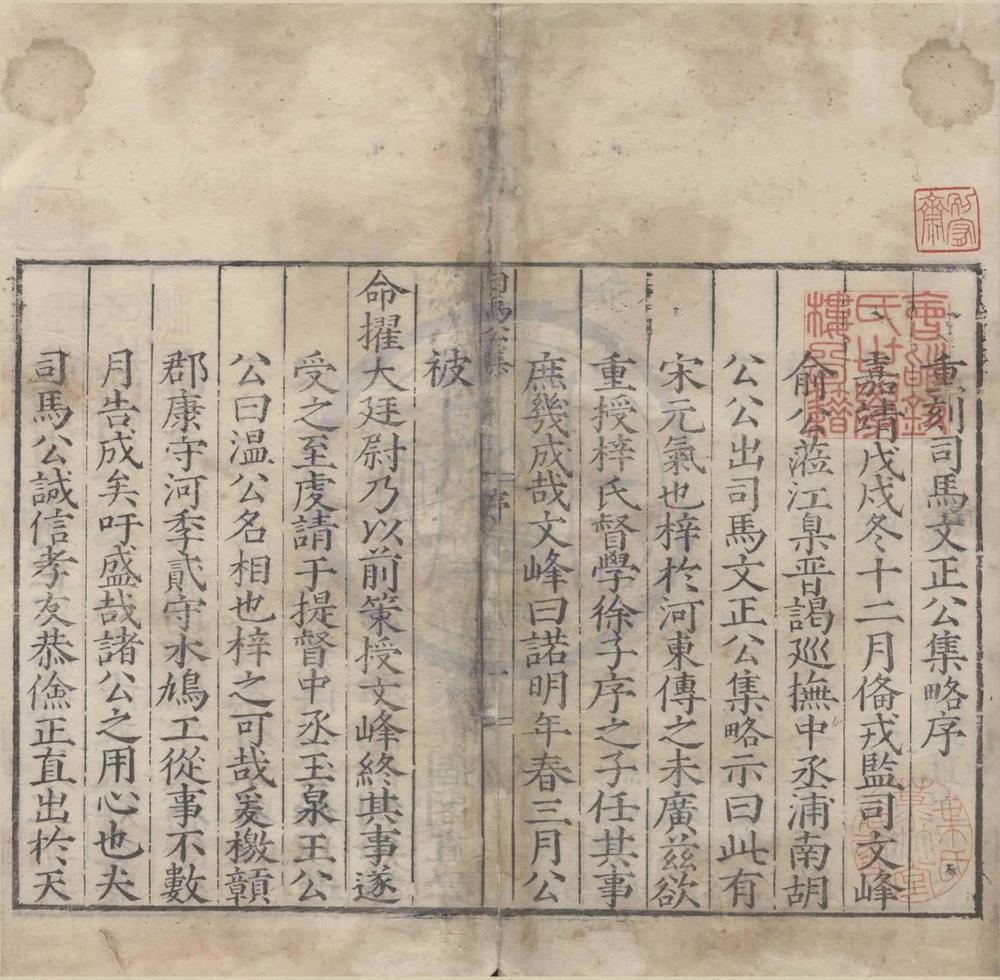 重刻司馬文正公集略序
嘉靖戊戌冬十二月俻戎監司文峰
俞公蒞江臬晋謁廵撫中丞浦南胡
公公出司馬文正公集略示曰此有
宋元氣也梓扵河東傳之未廣兹欲
重授梓氏督學徐子序之子任其事
庶幾成哉文峰曰諾明年春三月公
被
命擢大廷尉乃以前策授文峰終其事遂
受之至虔請于提督中丞玉泉王公
公曰温公名相也梓之可哉爰檄贛
郡康守河季貳守水鳩工從事不數
月告成矣吁盛哉諸公之用心也夫
司馬公誠信孝友恭儉正直出扵天